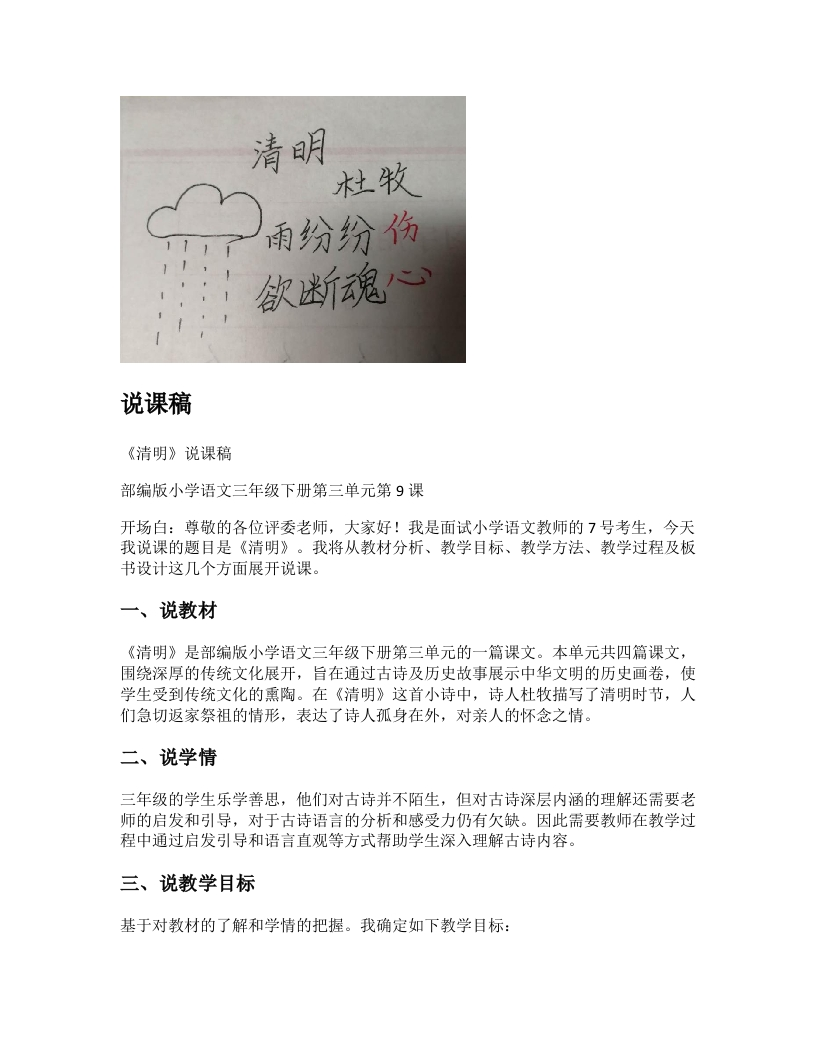 清明
杜牧
雨纷纷 伤
欲断魂 心
说课稿
《清明》说课稿
部编版小学语文三年级下册第三单元第 9 课
开场白：尊敬的各位评委老师，大家好！我是面试小学语文教师的 7 号考生，今天
我说课的题目是《清明》。我将从教材分析、教学目标、教学方法、教学过程及板
书设计这几个方面展开说课。
一、说教材
《清明》是部编版小学语文三年级下册第三单元的一篇课文。本单元共四篇课文，
围绕深厚的传统文化展开，旨在通过古诗及历史故事展示中华文明的历史画卷，使
学生受到传统文化的熏陶。在《清明》这首小诗中，诗人杜牧描写了清明时节，人
们急切返家祭祖的情形，表达了诗人孤身在外，对亲人的怀念之情。
二、说学情
三年级的学生乐学善思，他们对古诗并不陌生，但对古诗深层内涵的理解还需要老
师的启发和引导，对于古诗语言的分析和感受力仍有欠缺。因此需要教师在教学过
程中通过启发引导和语言直观等方式帮助学生深入理解古诗内容。
三、说教学目标
基于对教材的了解和学情的把握。我确定如下教学目标：